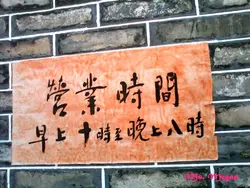 營業時間
早上十時至晚上八時